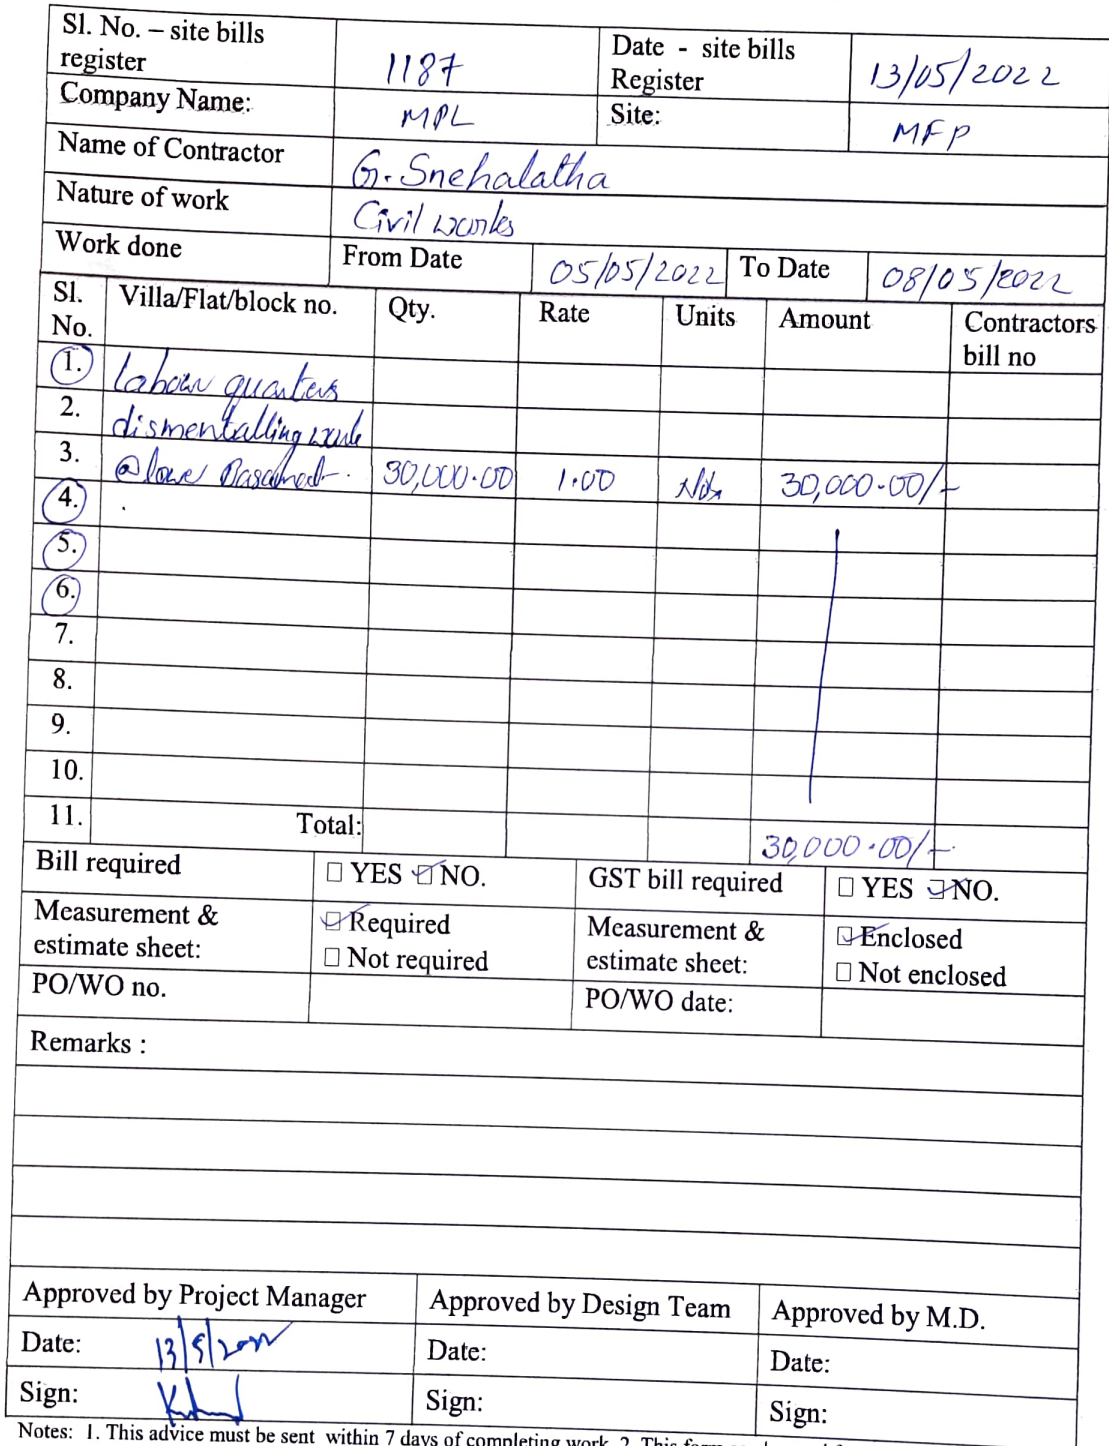 Sl. No. – site bills register 1187 Date - site bills Register 13/05/2022
Company Name: MPL Site: MFP
Name of Contractor G. Snehalatha
Nature of work Civil works
Work done From Date 05/05/2022 To Date 08/05/2022
Sl. No. Villa/Flat/block no. Qty. Rate Units Amount Contractors bill no
1. labour quarters
2. dismentalling work
3. @ lower Basement. 30,000.00 1.00 30,000.00/-
4.
5.
6.
7.
8.
9.
10.
11. Total: 30,000.00/-
Bill required YES NO. GST bill required YES NO.
Measurement & estimate sheet: Required Not required Measurement & estimate sheet: Enclosed Not enclosed
PO/WO no. PO/WO date:
Remarks :
Approved by Project Manager Approved by Design Team Approved by M.D.
Date: 13/5/2022 Date: Date:
Sign: Sign: Sign:
Notes: 1. This advice must be sent within 7 days of completing work. 2. This form